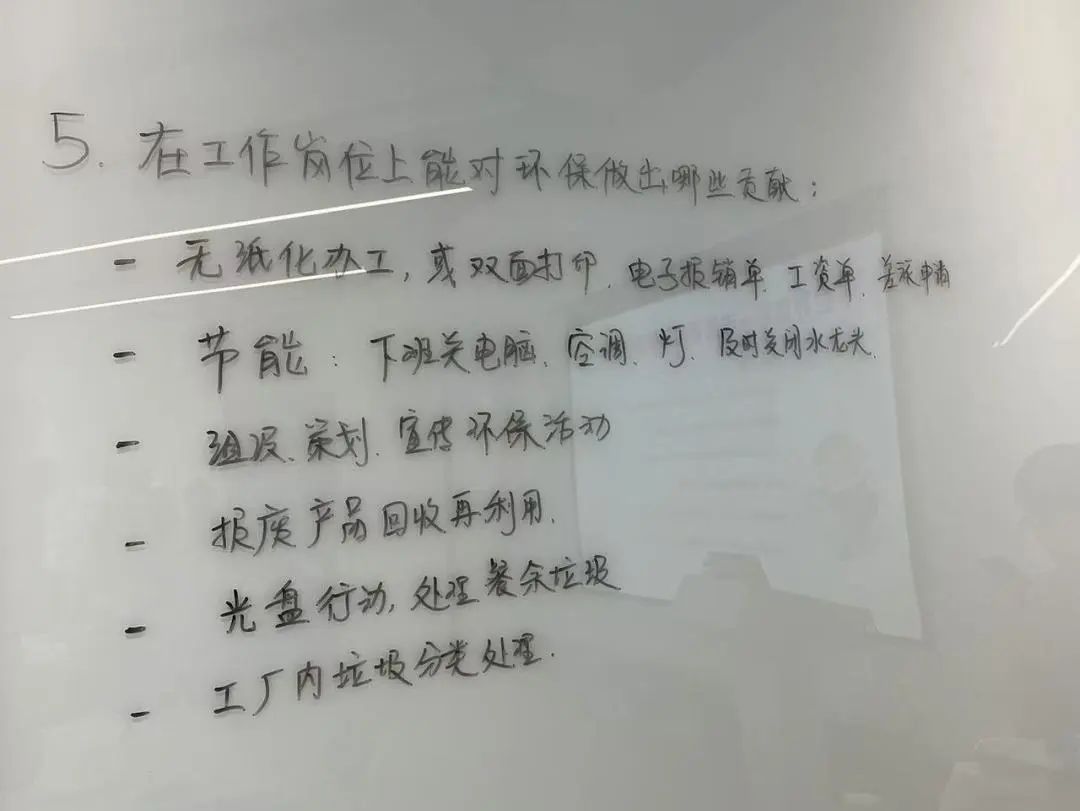 5. 在工作岗位上能对环保做出哪些贡献:
- 无纸化办工,或双面打印、电子报销单、工资单、差旅申请
- 节能: 下班关电脑、空调、灯、及时关闭水龙头.
- 组织、策划、宣传环保活动
- 报废产品回收再利用.
- 光盘行动,处理餐余垃圾
- 工厂内垃圾分类处理.